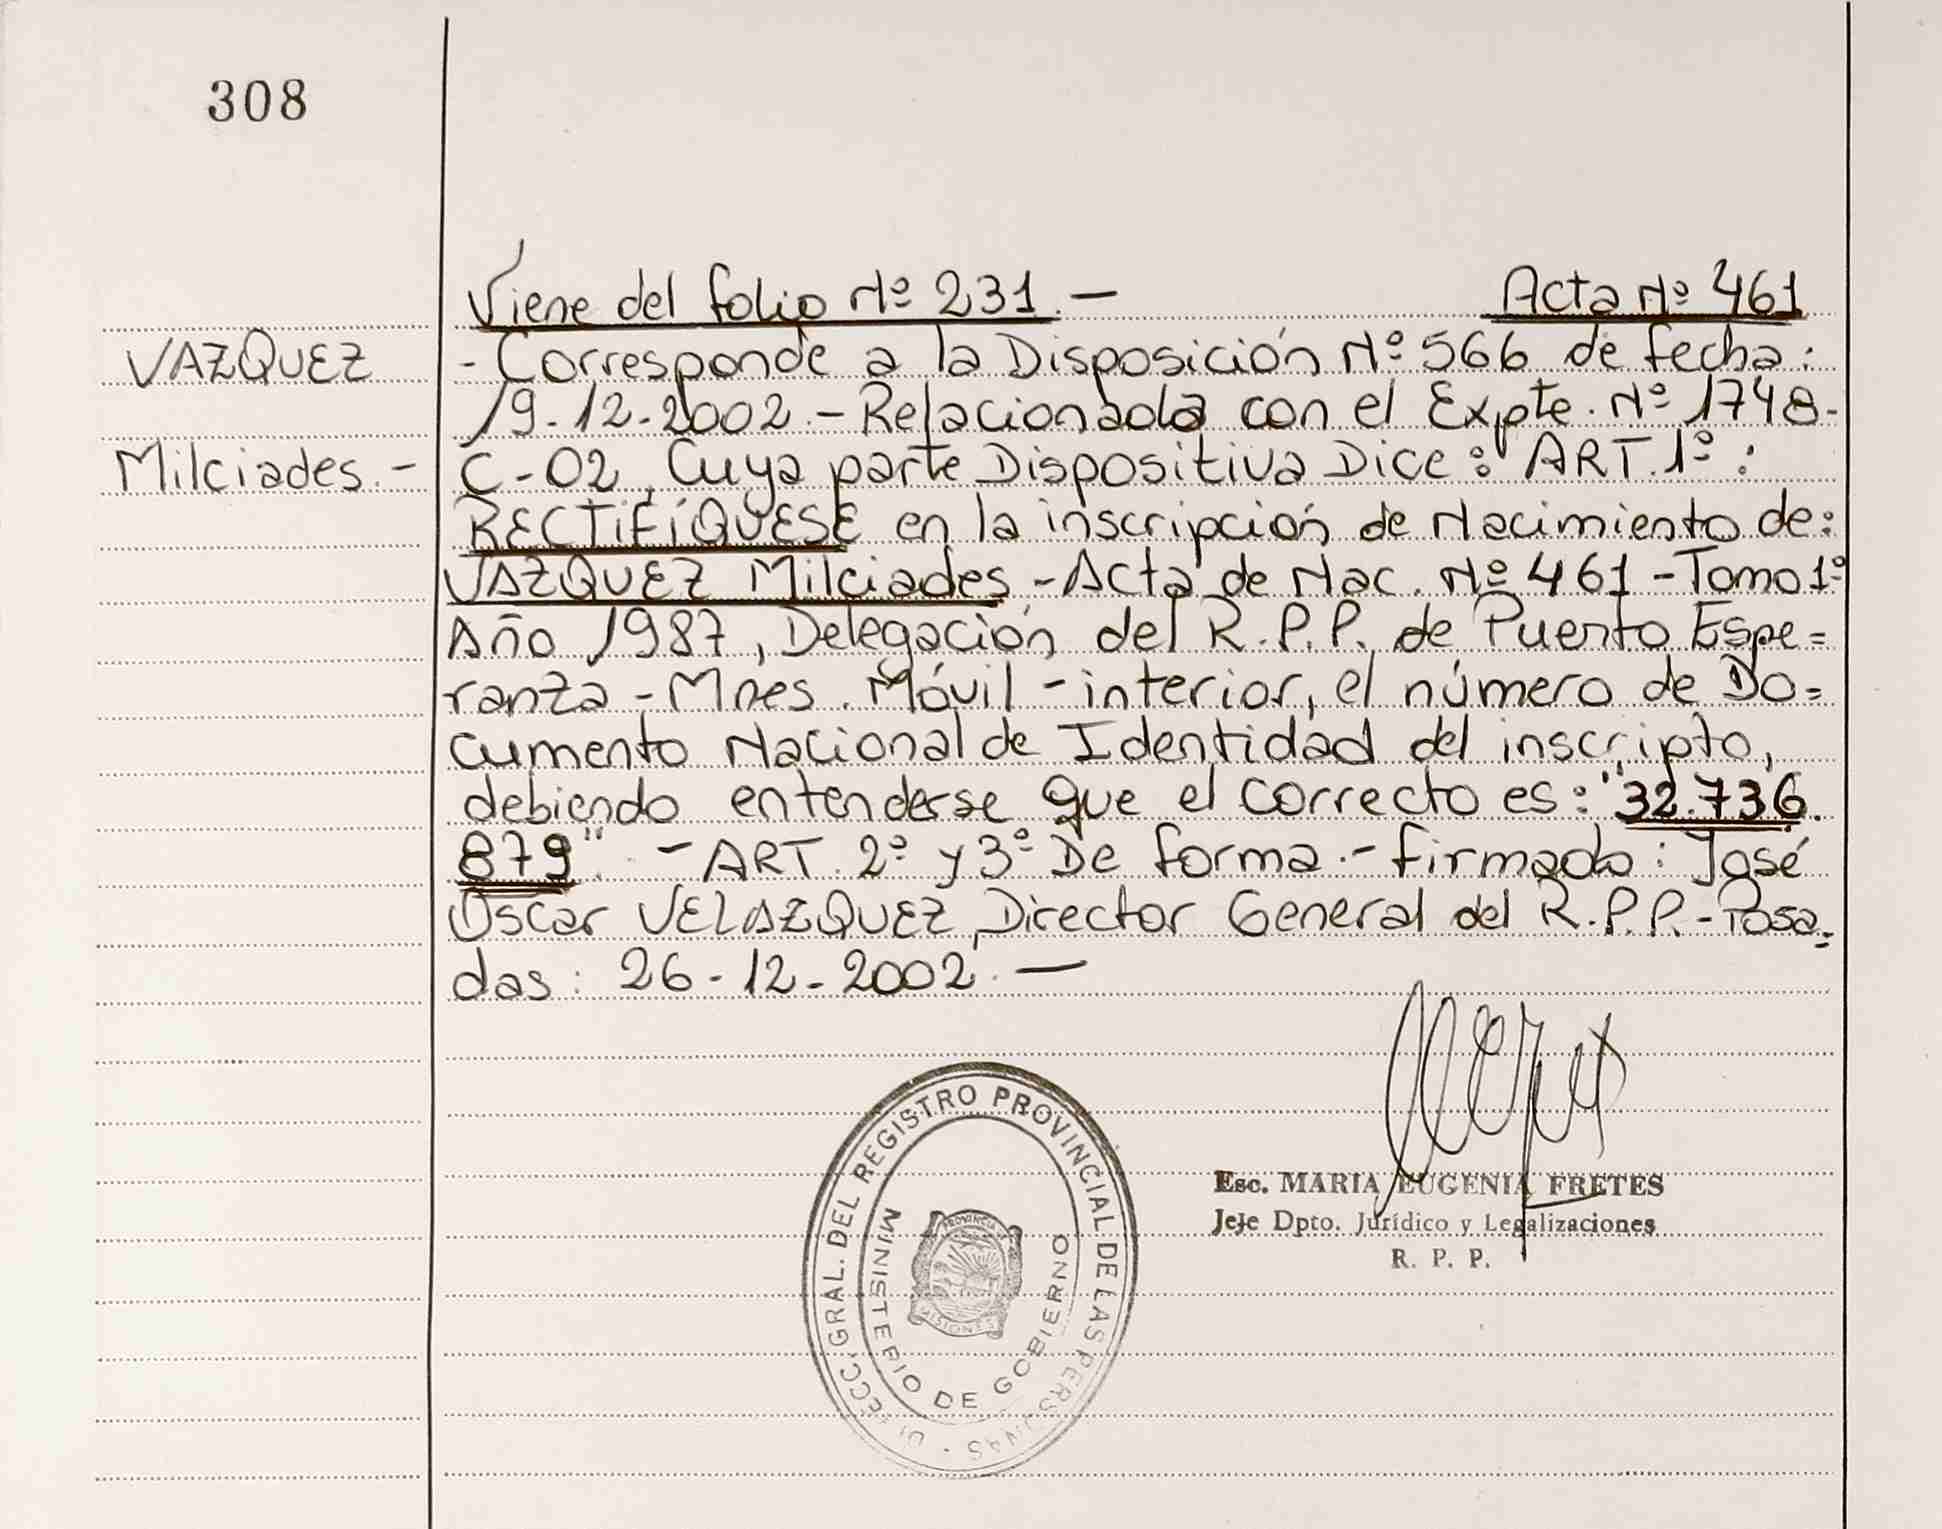 308
Viene del folio Nº 231.— Acta Nº 461
VAZQUEZ
Milciades.-
- Corresponde a la Disposición Nº 566 de fecha:
19-12-2002.- Relacionada con el Expte. Nº 1748-
C-02, Cuya parte Dispositiva Dice: ART. 1º:
RECTIFÍQUESE en la inscripción de Nacimiento de:
VAZQUEZ Milciades,-Acta de Nac. Nº 461-Tomo 1º
Año 1987, Delegación del R.P.P. de Puerto Espe=
ranza - Mnes. Móvil - interior, el número de Do=
cumento Nacional de Identidad del inscripto,
debiendo entenderse que el correcto es: "32.736.
879". - ART. 2º y 3º De forma.- Firmado: José
Oscar VELAZQUEZ, Director General del R.P.P.- Posa=
das: 26-12-2002.—
Esc. MARIA EUGENIA FRETES
Jefe Dpto. Jurídico y Legalizaciones
R. P. P.
DIRECC. GRAL. DEL REGISTRO PROVINCIAL DE LAS PERSONAS -
MINISTERIO DE GOBIERNO
PROVINCIA
MISIONES